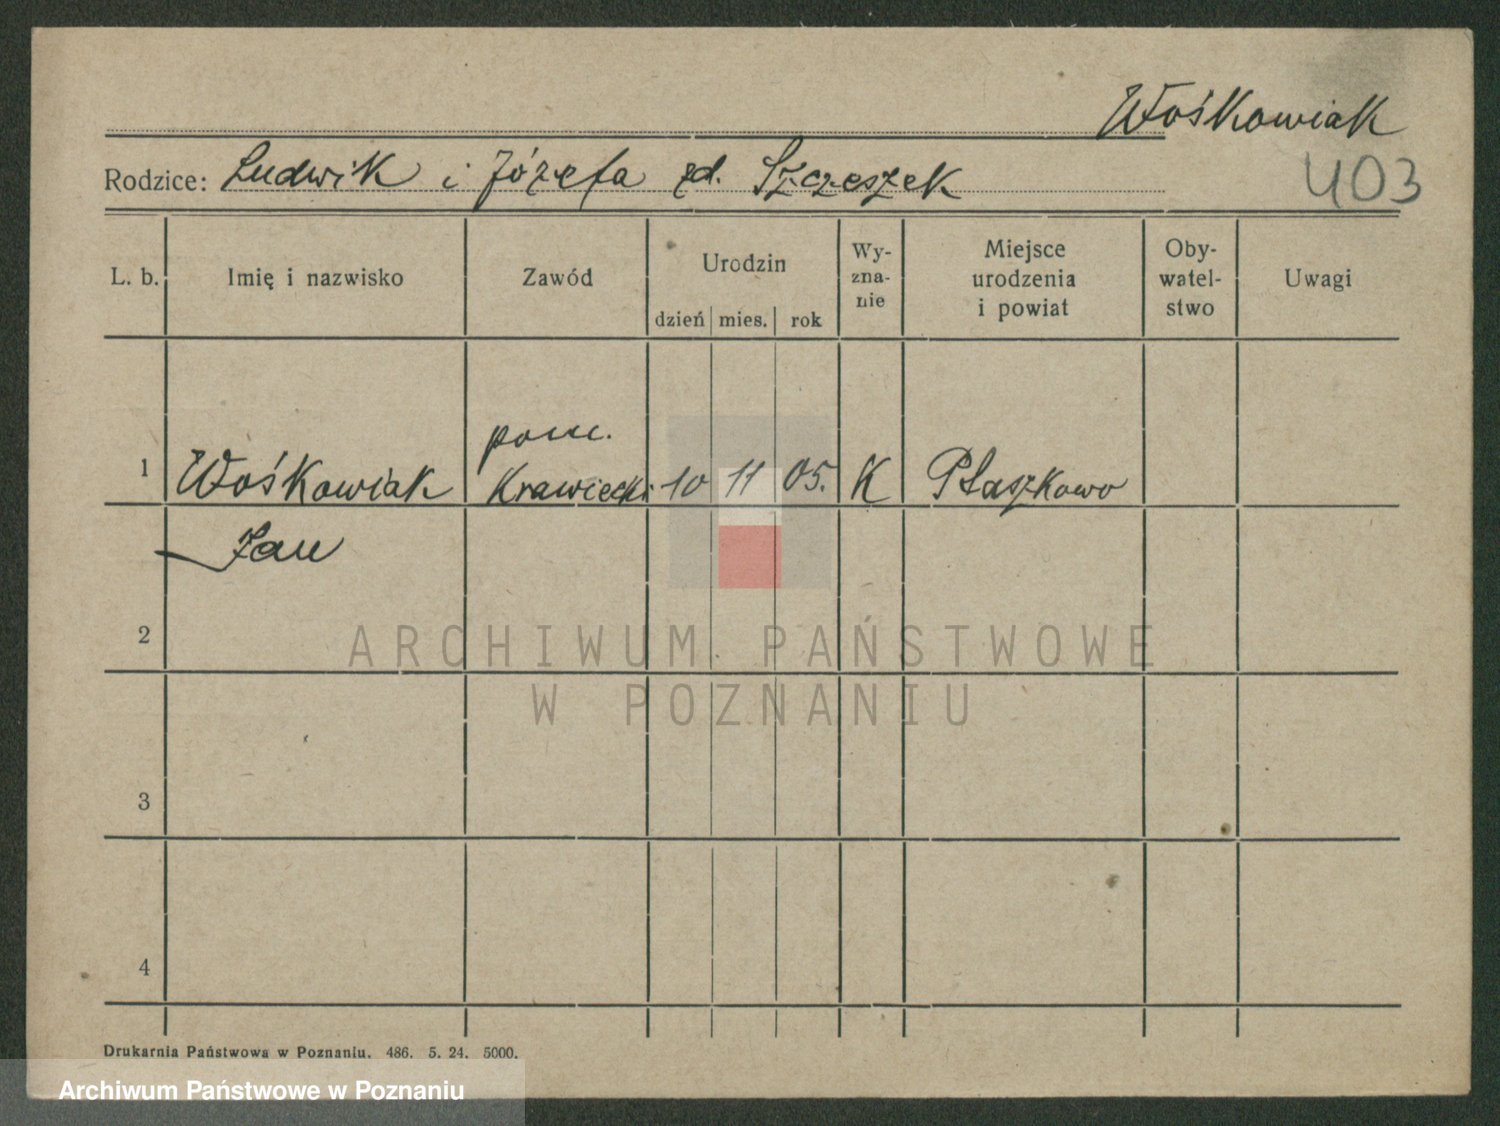 Wośkowiak
Rodzice: Ludwik i Józefa zd. Szczeszek
403
L. b. Imię i nazwisko Zawód Urodzin dzień mies. rok Wy-zna-nie Miejsce urodzenia i powiat Oby-watel-stwo Uwagi
pom.
1 Wośkowiak Krawiecki 10 11 05. K Ptaszkowo
Jan
2
ARCHIWUM PAŃSTWOWE
W POZNANIU
3
4
Drukarnia Państwowa w Poznaniu. 486. 5. 24. 5000.
Archiwum Państwowe w Poznaniu